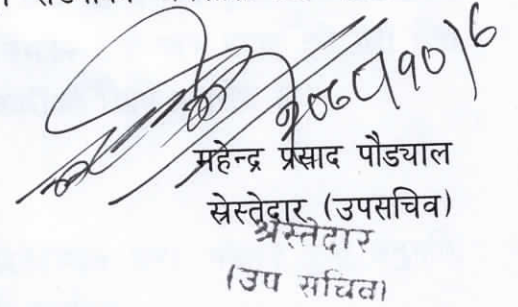 २०६८|१०|६
महेन्द्र प्रसाद पौड्याल
स्रेस्तेदार (उपसचिव)
श्रेस्तेदार
(उप सचिव)